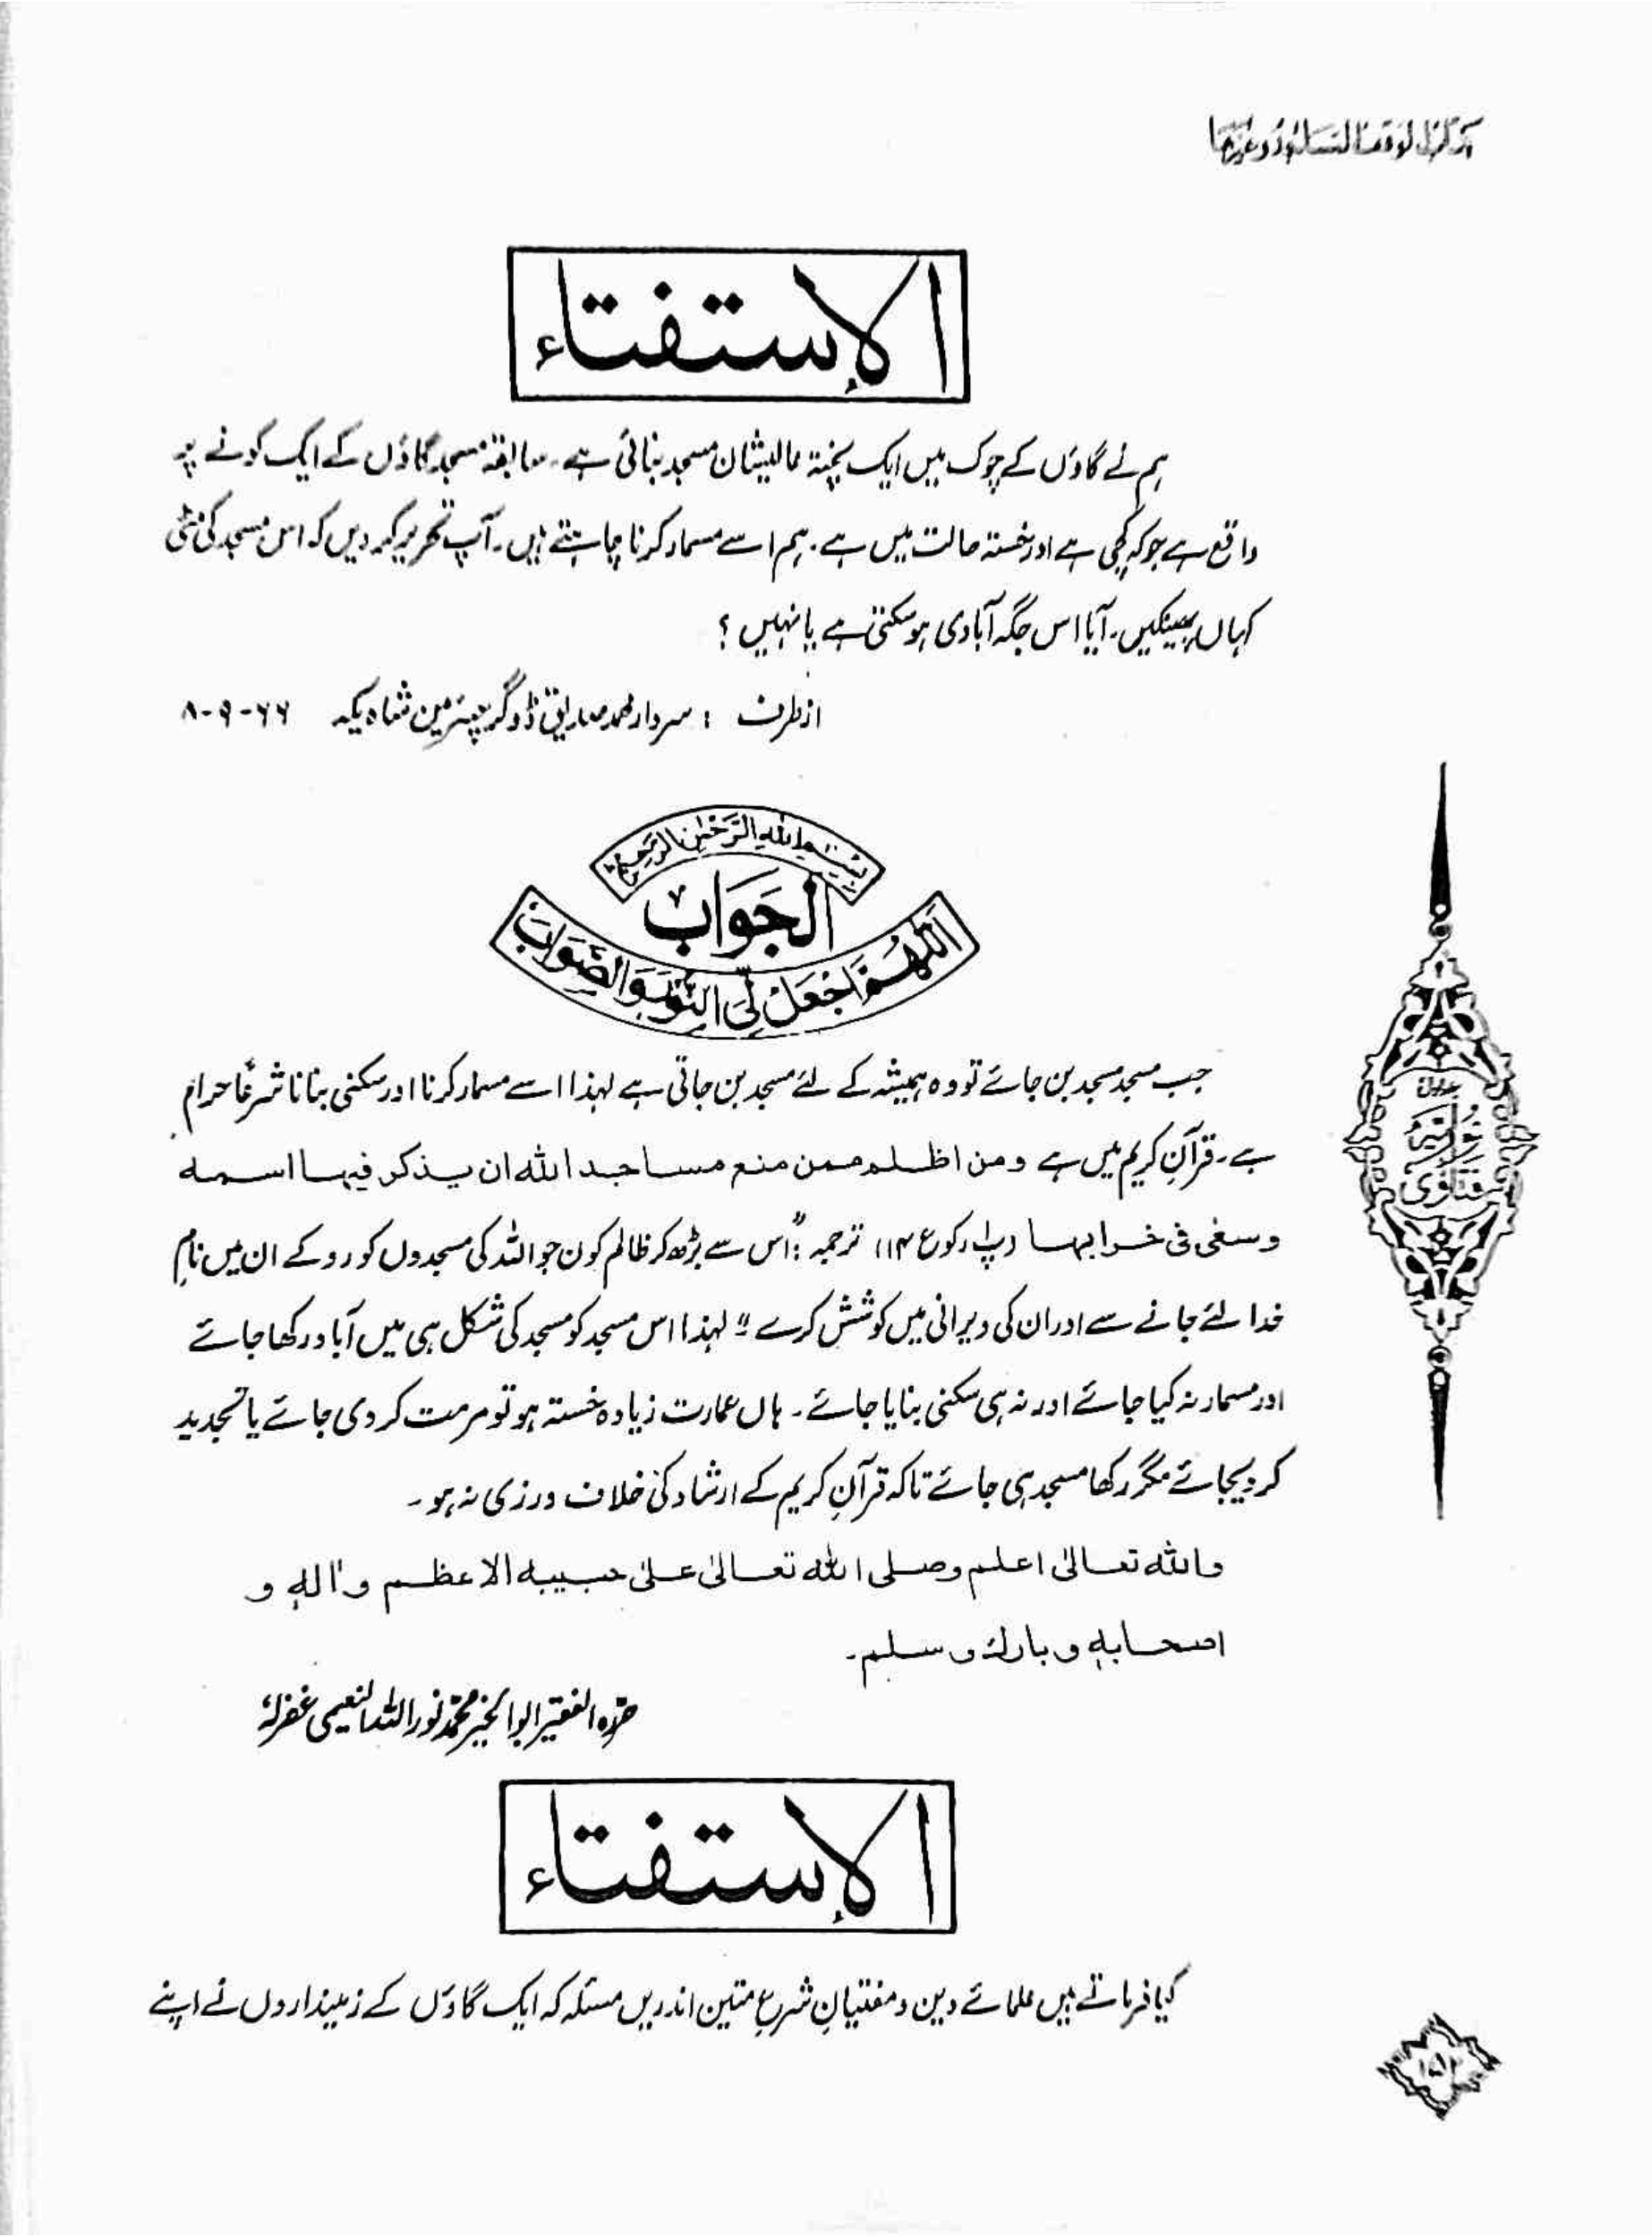 الاستفتاء
ہم نے گاؤں کے چوک میں ایک پختہ عالیشان مسجد بنائی ہے۔ سابقہ مسجد گاؤں کے ایک کونے پر
واقع ہے جو کہ کچی ہے اور خستہ حالت میں ہے۔ ہم اسے مسمار کرنا چاہتے ہیں۔ آپ تحریر کر دیں کہ اس مسجد کی مٹی
کہاں پھینکیں۔ آیا اس جگہ آبادی ہو سکتی ہے یا نہیں ؟
از طرف : سردار محمد صادق ڈوگر چیئرمین شاہ یکہ ۶۶-۹-۸
بسم اللہ الرحمٰن الرحیم
الجواب
اللّٰهم اجعل لی النور والصواب
جب مسجد مسجد بن جائے تو وہ ہمیشہ کے لئے مسجد بن جاتی ہے لہذا اسے مسمار کرنا اور سکنی بنانا شرعًا حرام
ہے۔ قرآنِ کریم میں ہے ومن اظلم ممن منع مساجد اللہ ان یذکر فیہا اسمہ
وسعٰی فی خرابہا (پ۱ رکوع ۱۴) ترجمہ : "اس سے بڑھ کر ظالم کون جو اللہ کی مسجدوں کو روکے ان میں نامِ
خدا لئے جانے سے اور ان کی ویرانی میں کوشش کرے" لہذا اس مسجد کو مسجد کی شکل ہی میں آباد رکھا جائے
اور مسمار نہ کیا جائے اور نہ ہی سکنی بنایا جائے۔ ہاں عمارت زیادہ خستہ ہو تو مرمت کر دی جائے یا تجدید
کر دیجائے مگر رکھا مسجد ہی جائے تاکہ قرآنِ کریم کے ارشاد کی خلاف ورزی نہ ہو۔
واللہ تعالیٰ اعلم وصلی اللہ تعالیٰ علیٰ حبیبہ الاعظم واٰلہٖ و
اصحابہٖ وبارک وسلم۔
حررہ الفقیر ابوالخیر محمد نور اللہ النعیمی غفرلہٗ
جلد اول
فتاویٰ نوریہ
الاستفتاء
کیا فرماتے ہیں علمائے دین و مفتیانِ شرع متین اندریں مسئلہ کہ ایک گاؤں کے زمینداروں نے اپنے